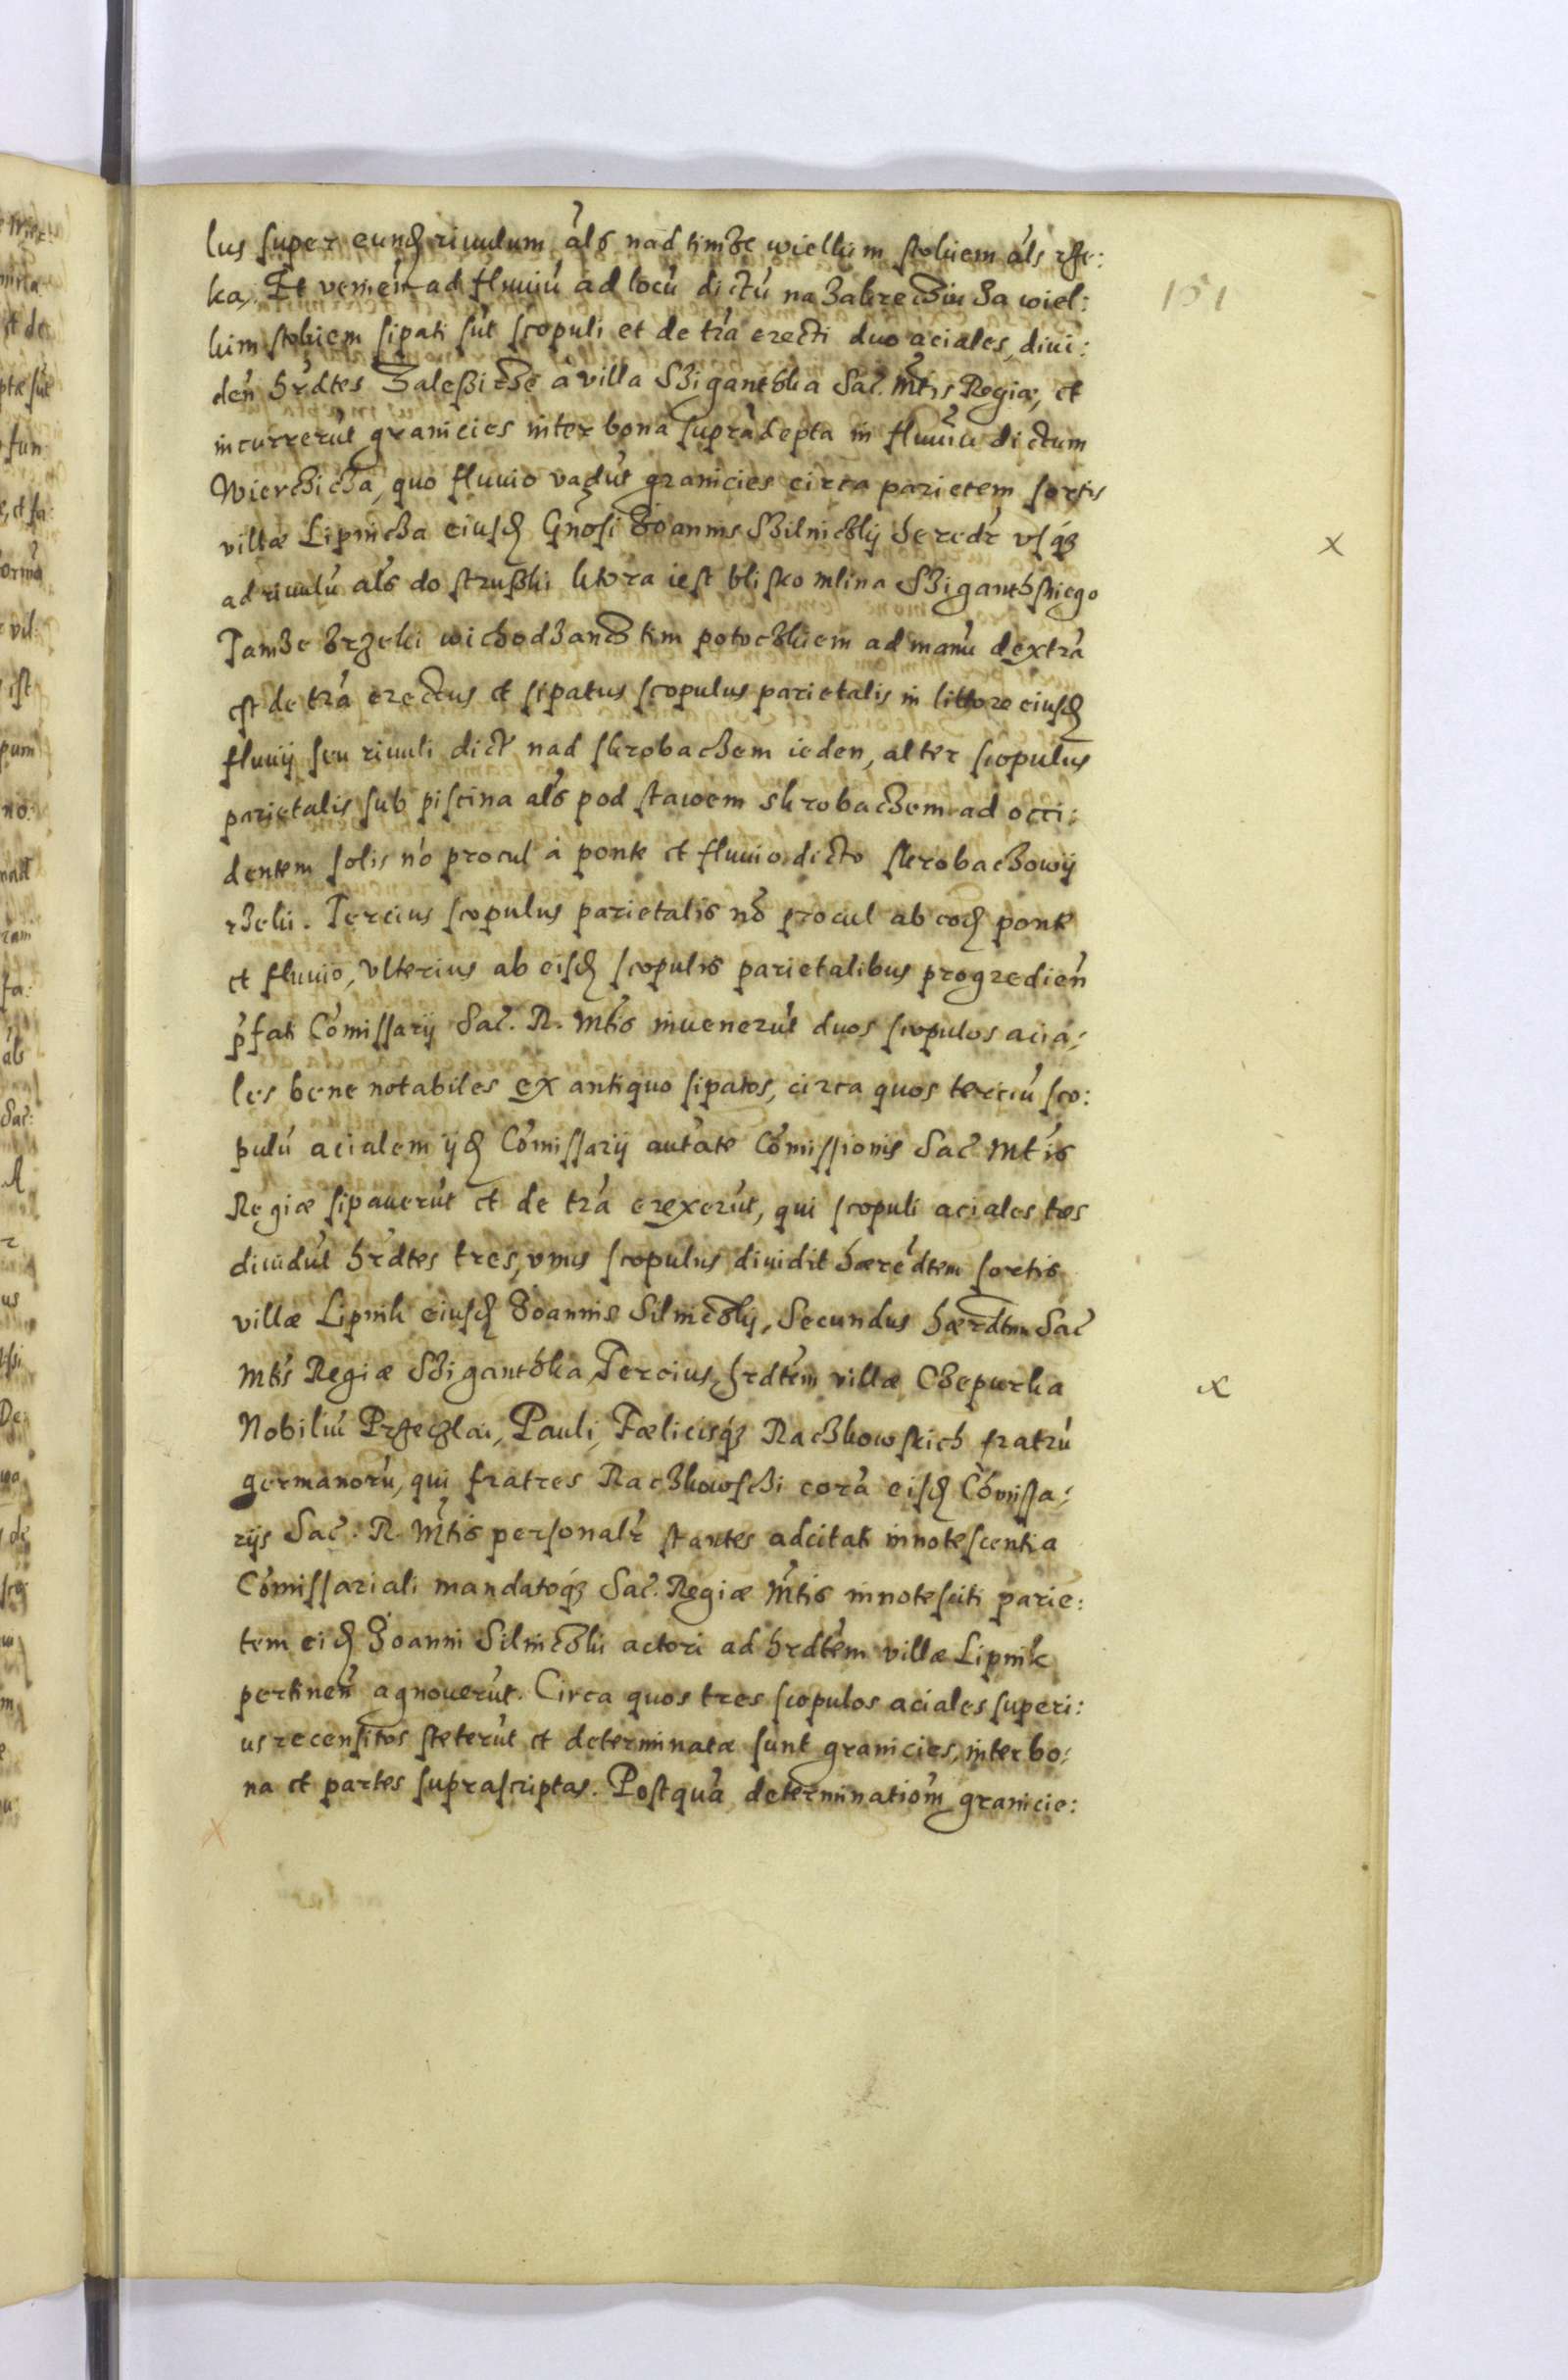 lus super eund rivulum als nad timze wielkim stokiem als rze:
ka, Et venien ad fluuiu ad locu dictu na Zakreczin Za wiel:
kim stokiem sipati sut scopuli et de tra erecti duo aciales, diui:
den hrdtes Zalesicze à villa Sziganthka Sac. Mtis Regiæ, et
incurrerut granicies inter bona supradepta in fluuiu dictum
Wierchicza, quo fluuio vadut granicies circa parietem sortis
villæ Lipnicza eiusd Gnosi Joannis Szilniczky heredr vsq
ad riuulu als do struski ktora iest blisko mlina Sziganthskiego
Tamze Zrzeki wichodzancz tim potoczkiem ad manu dextra
est de tra erectus et sipatus scopulus parietalis in littore eiusd
fluuij seu riuuli dict nad skrobaczem ieden, alter scopulus
parietalis sub piscina als pod stawem skrobaczem ad occi:
dentem solis no procul à ponte et fluuio dicto skrobaczowy
rzeki. Tercius scopulus parietalis no procul ab eod ponte
et fluuio, Vlterius ab eisd scopulis parietalibus progredien
pfati Comissarij Sac. R. Mtis inuenerut duos scopulos acia:
les bene notabiles ex antiquo sipatos, circa quos terciu sco:
pulu acialem ijd Comissarij autate Comissionis Sac Mtis
Regiæ sipauerut et de tra erexerut, qui scopuli aciales tres
diuidut hrdtes tres, vnus scopulus diuidit hæredtem sortis
villæ Lipnik eiusd Joannis Silniczky, Secundus hærdtem Sac
Mtis Regiæ Sziganthka, Tercius, hrdtem villæ Czepurka
Nobiliu Przeczlai, Pauli, Fælicisq Raczkowskich fratru
germanoru, qui fratres Raczkowsczi cora eisd Comissa:
rijs Sac. R. Mtis personalr stantes adcitati innotescentia
Comissariali mandatoq Sac. Regiæ Mtis innotesciti parie:
tem eid Joanni Silniczki actori ad hrdtem villæ Lipnik
pertinen agnouerut. Circa quos tres scopulos aciales superi:
us recensitos steterut et determinatæ sunt granicies, inter bo:
na et partes suprascriptas. Postqua determinatiom granicie:
151
x
x
x